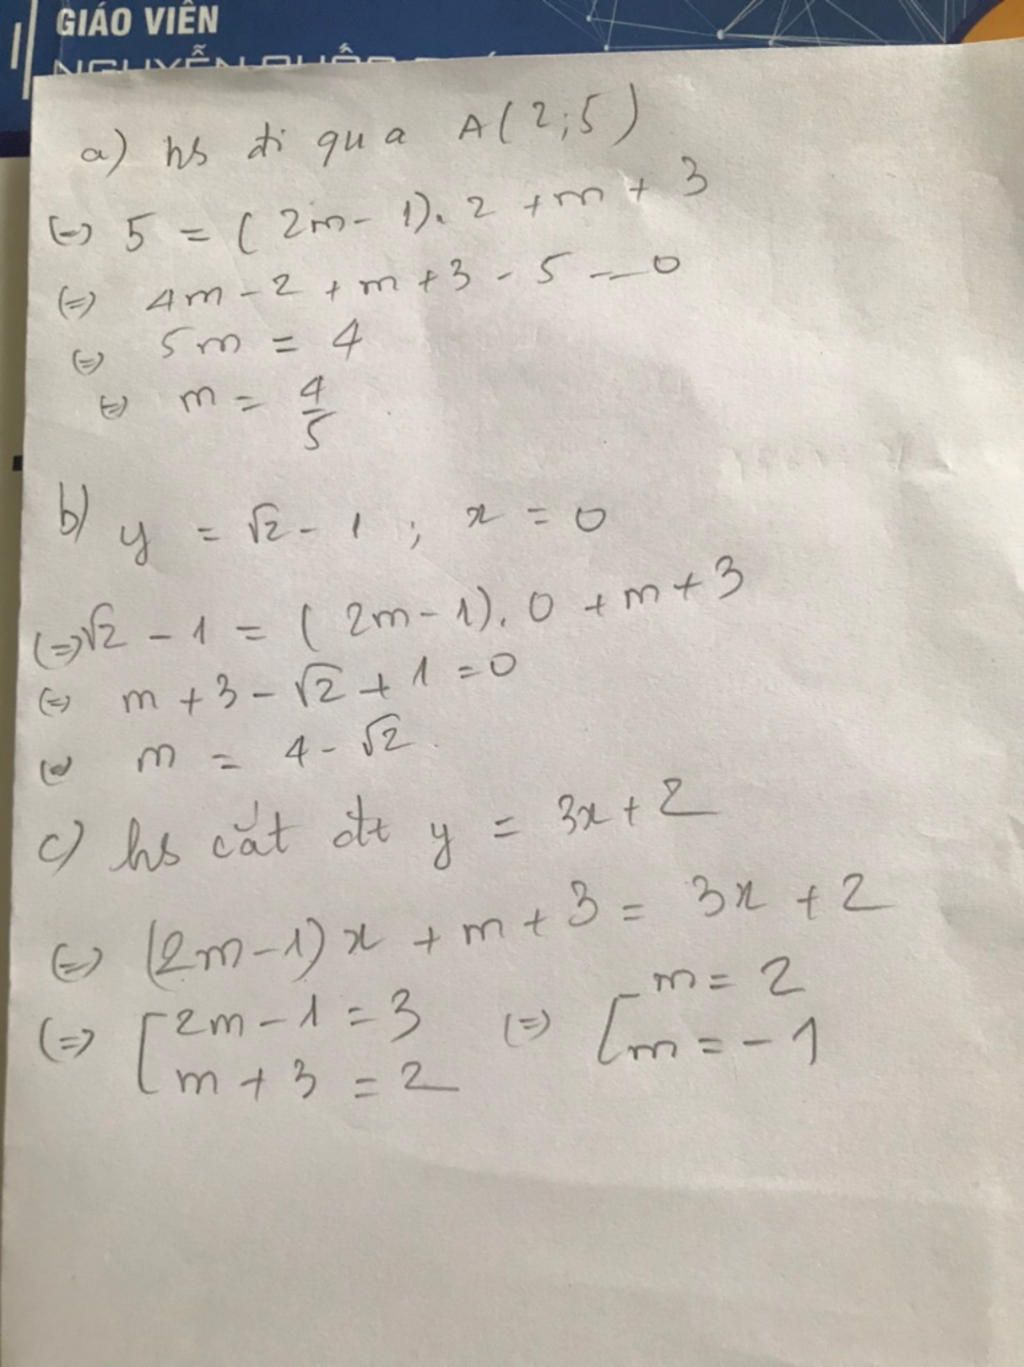 GIÁO VIÊN
NGUYỄN QUỐC
a) hs đi qua A(2;5)
(=) 5 = (2m - 1). 2 + m + 3
(=) 4m - 2 + m + 3 - 5 = 0
(=) 5m = 4
(=) m = 4/5
b) y = √2 - 1 ; x = 0
(=) √2 - 1 = (2m - 1). 0 + m + 3
(=) m + 3 - √2 + 1 = 0
(=) m = 4 - √2.
c) hs cắt đt y = 3x + 2
(=) (2m - 1) x + m + 3 = 3x + 2
(=) [ 2m - 1 = 3 (=) [ m = 2
m + 3 = 2 m = - 1